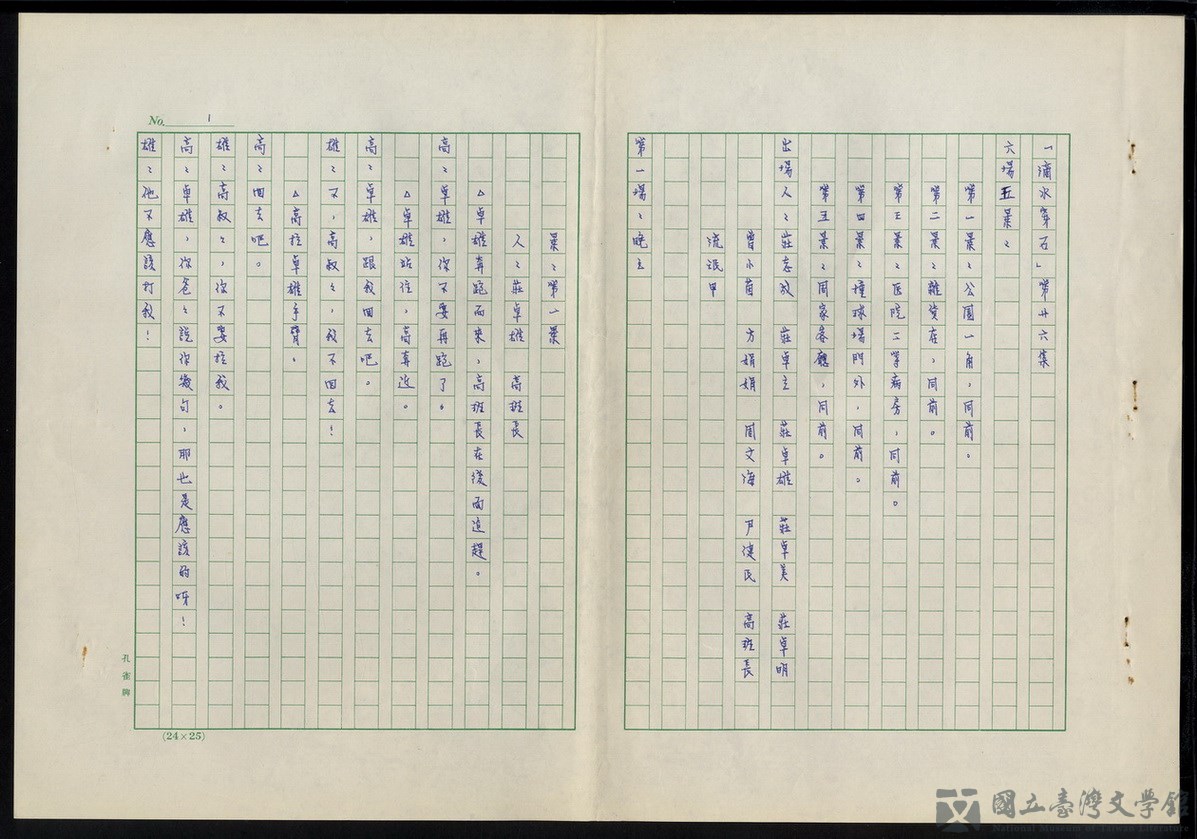 「滴水穿石」第廿六集
六場五景：
第一景：公園一角，同前。
第二景：雜貨店，同前。
第三景：医院二等病房，同前。
第四景：撞球場門外，同前。
第五景：周家客廳，同前。
出場人：莊志放　莊卓立　莊卓雄　莊卓美　莊卓明
曾小茵　方娟娟　周文海　尹健民　高班長
流氓甲
第一場：晚上
景：第一景
人：莊卓雄　高班長
△卓雄奔跑而來，高班長在後面追趕。
高：卓雄，你不要再跑了。
△卓雄站住，高奔近。
高：卓雄，跟我回去吧。
雄：不，高叔叔，我不回去！
△高拉卓雄手臂。
高：回去吧。
雄：高叔叔，你不要拉我。
高：卓雄，你爸爸說你幾句，那也是應該的呀！
雄：他不應該打我！
No. 1
孔雀牌
(24×25)
國立臺灣文學館
National Museum of Taiwan Literature